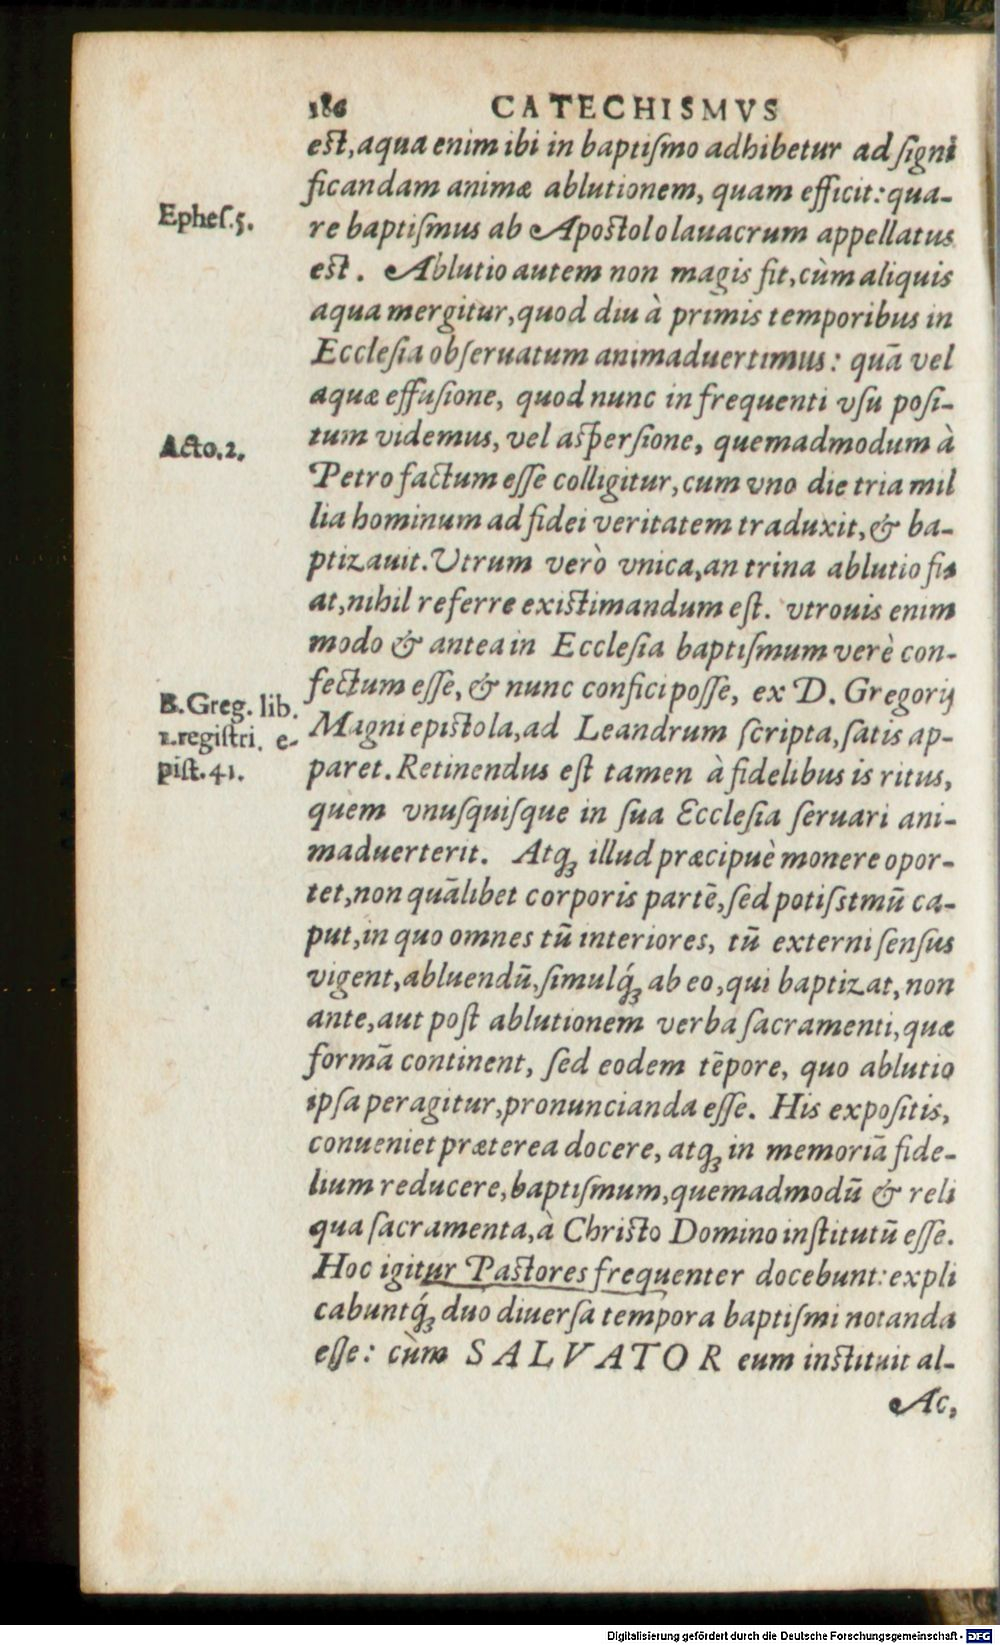 186 CATECHISMVS
est, aqua enim ibi in baptiſmo adhibetur ad ſigni
ficandam animæ ablutionem, quam efficit: qua-
Epheſ.5.
re baptiſmus ab Apostolo lauacrum appellatus
est. Ablutio autem non magis fit, cùm aliquis
aqua mergitur, quod diu à primis temporibus in
Eccleſia obſeruatum animaduertimus: quā vel
aquæ effuſione, quod nunc in frequenti vſu poſi-
tum videmus, vel aſperſione, quemadmodum à
Acto.2.
Petro factum eſſe colligitur, cum vno die tria mil
lia hominum ad fidei veritatem traduxit, & ba-
ptizauit. Utrum verò vnica, an trina ablutio fi
at, nihil referre existimandum eſt. vtrouis enim
modo & antea in Eccleſia baptiſmum verè con-
fectum eſſe, & nunc confici poſſe, ex D. Gregorij
B. Greg. lib.
1. regiſtri, e-
piſt. 41.
Magni epistola, ad Leandrum ſcripta, ſatis ap-
paret. Retinendus eſt tamen à fidelibus is ritus,
quem vnuſquiſque in ſua Eccleſia ſeruari ani-
maduerterit. Atq; illud præcipuè monere opor-
tet, non quālibet corporis partē, ſed potiſstmū ca-
put, in quo omnes tū interiores, tū externi ſenſus
vigent, abluendū, ſimulq́; ab eo, qui baptizat, non
ante, aut poſt ablutionem verba ſacramenti, quæ
formā continent, ſed eodem tēpore, quo ablutio
ipſa peragitur, pronuncianda eſſe. His expoſitis,
conueniet præterea docere, atq; in memoriā fide-
lium reducere, baptiſmum, quemadmodū & reli
qua ſacramenta, à Christo Domino inſtitutū eſſe.
Hoc igitur Pastores frequenter docebunt: expli
cabuntq́; duo diuerſa tempora baptiſmi notanda
eſſe: cùm SALVATOR eum instituit al-
Ac,
Digitalisierung gefördert durch die Deutsche Forschungsgemeinschaft - DFG